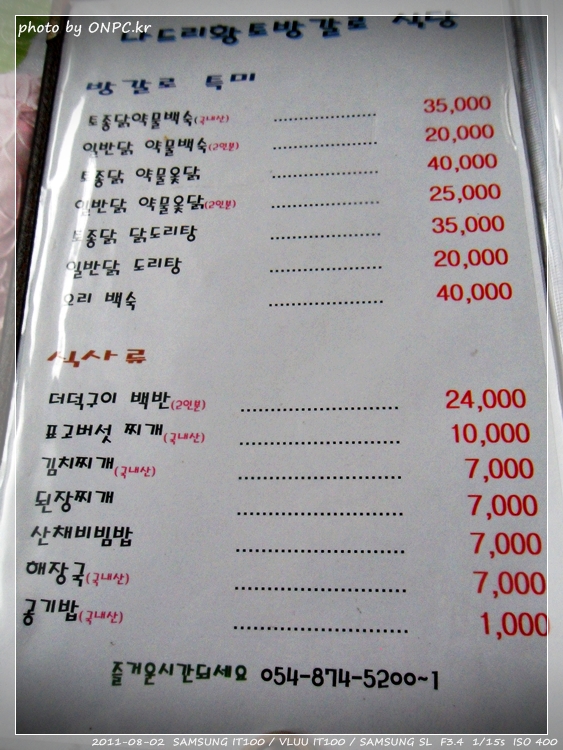 photo by ONPC.kr
나드리황토방갈로 식당
방갈로 특미
토종닭약물백숙(국내산) 35,000
일반닭 약물백숙(2인분) 20,000
토종닭 약물옻닭 40,000
일반닭 약물옻닭(2인분) 25,000
토종닭 닭도리탕 35,000
일반닭 도리탕 20,000
오리 백숙 40,000
식사류
더덕구이 백반(2인분) 24,000
표고버섯 찌개(국내산) 10,000
김치찌개(국내산) 7,000
된장찌개 7,000
산채비빔밥 7,000
해장국(국내산) 7,000
공기밥(국내산) 1,000
즐거운시간되세요 054-874-5200~1
2011-08-02 SAMSUNG IT100 / VLUU IT100 / SAMSUNG SL F3.4 1/15s ISO 400